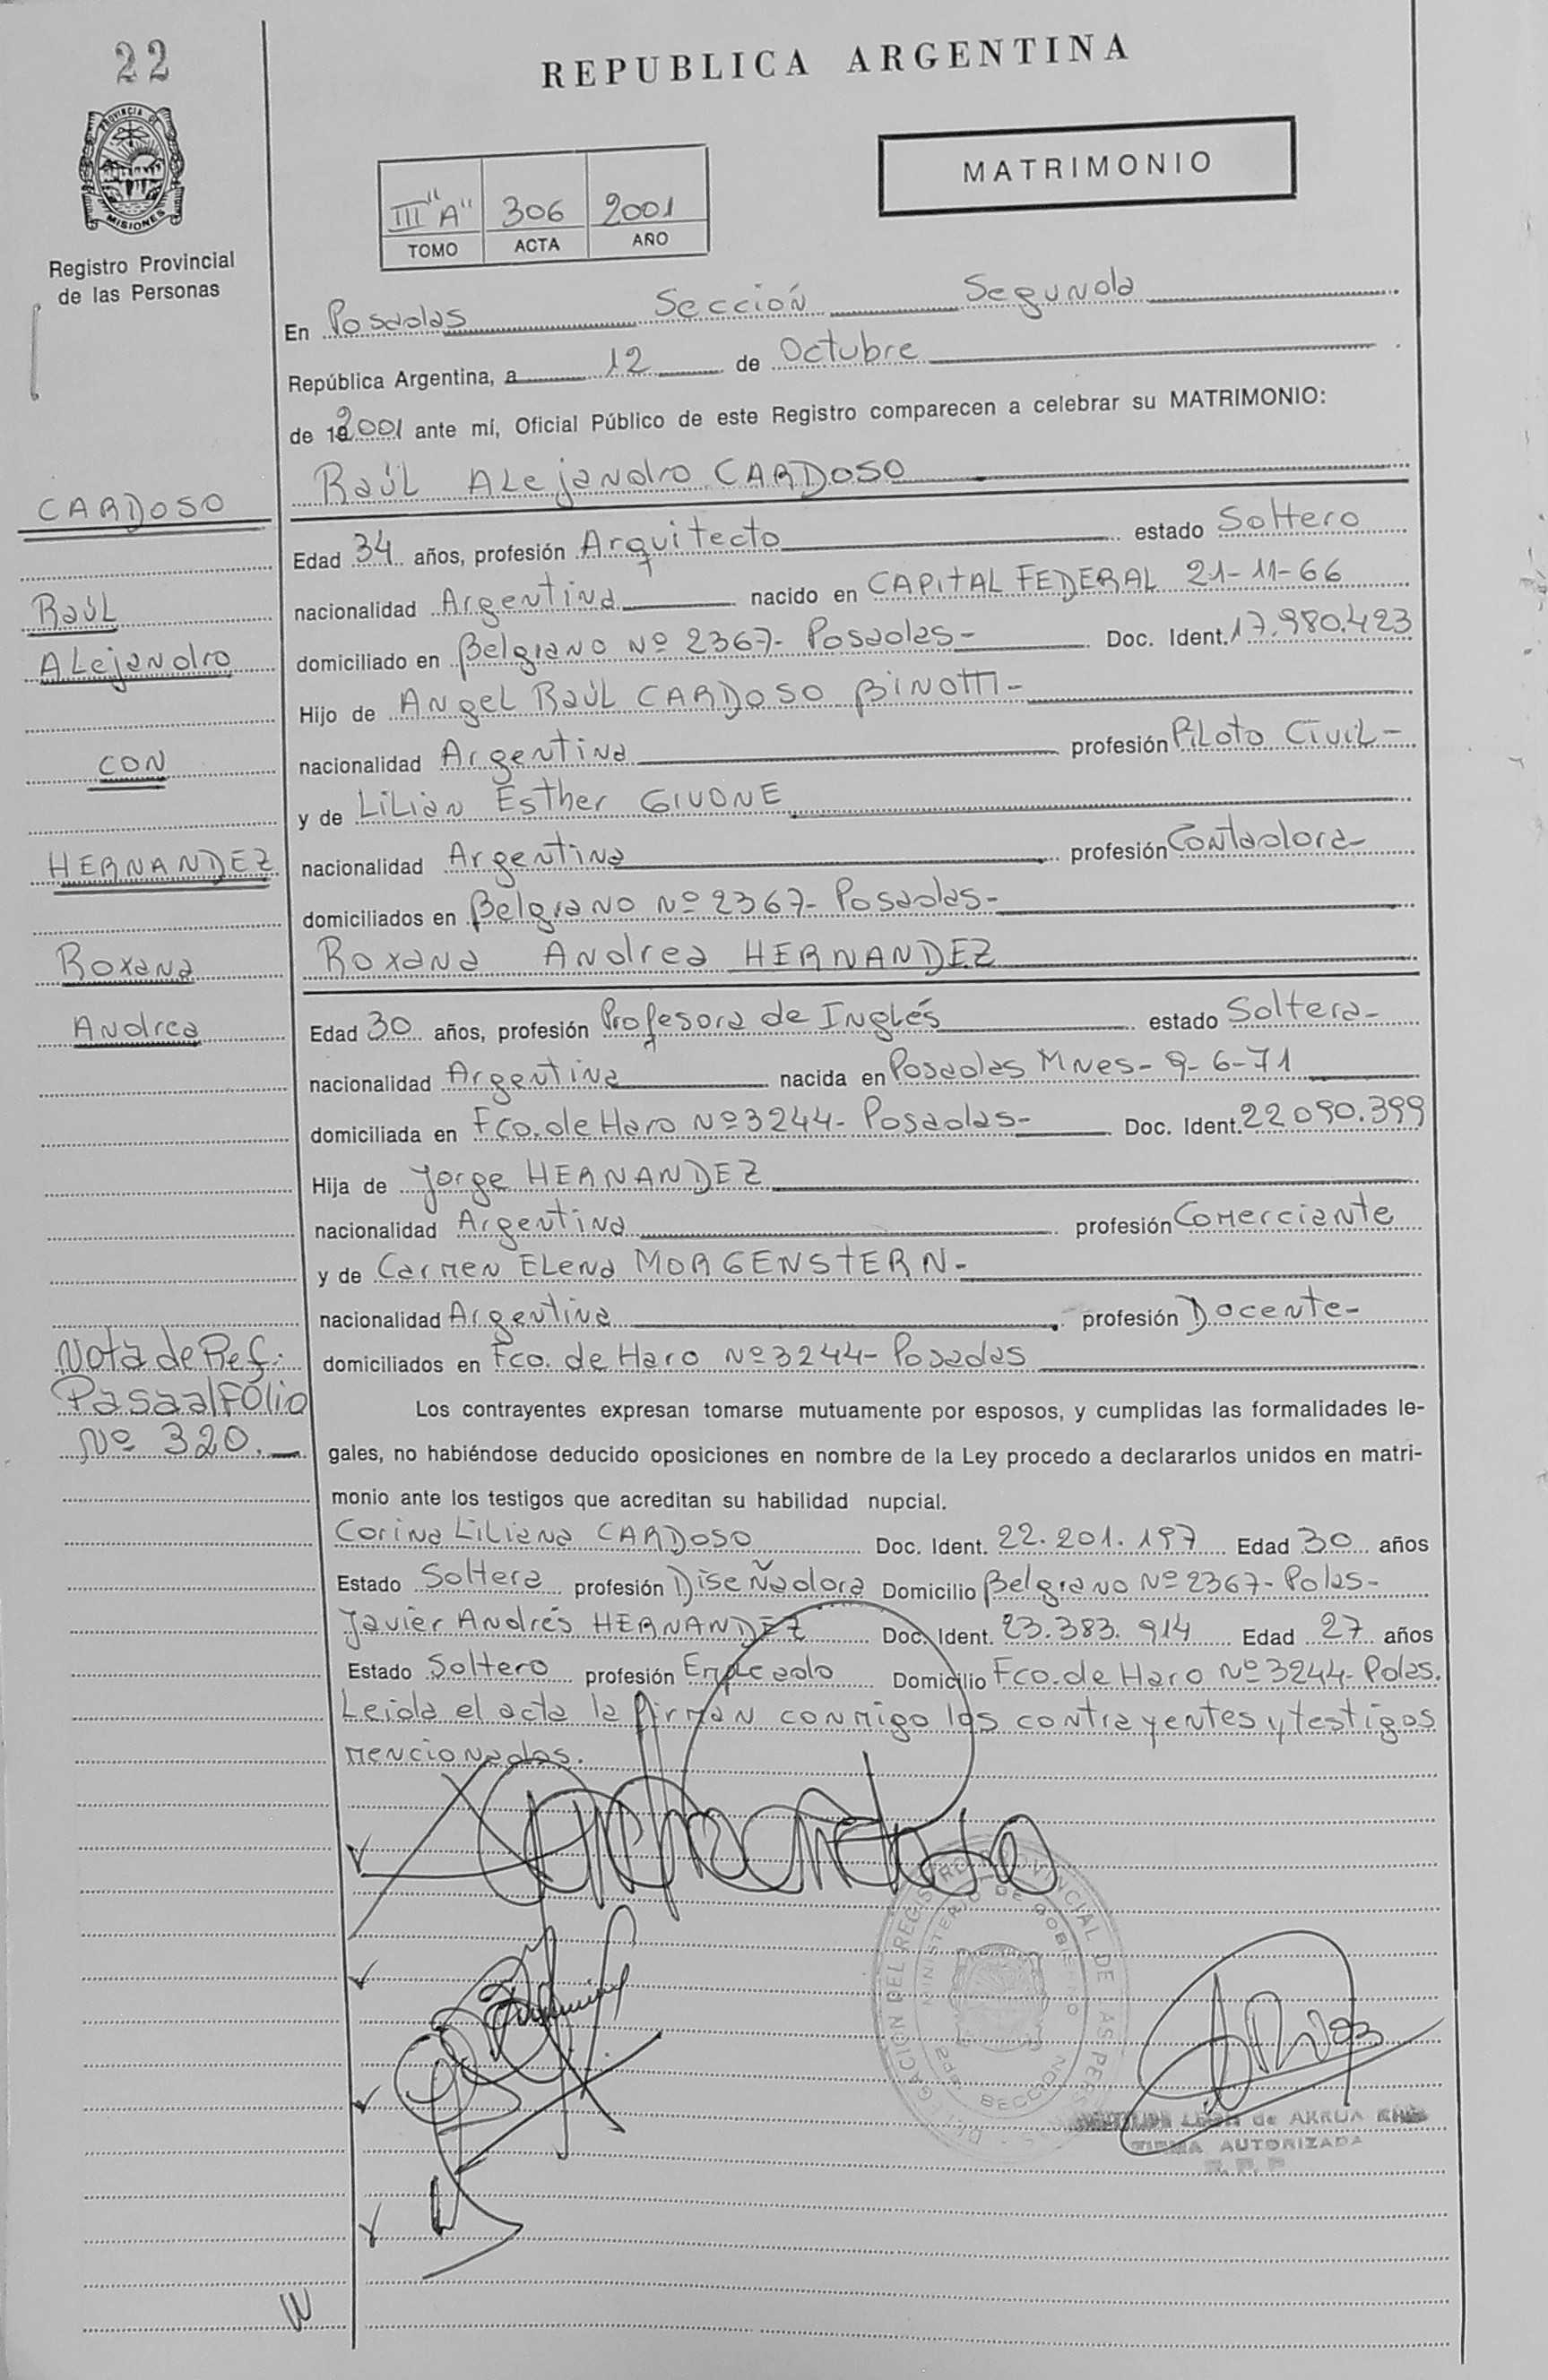 22
REPUBLICA ARGENTINA
PROVINCIA DE
MISIONES
Registro Provincial
de las Personas
III "A" 306 2001
TOMO ACTA AÑO
MATRIMONIO
En Posadas Sección Segunda
República Argentina, a 12 de Octubre
de 2001 ante mí, Oficial Público de este Registro comparecen a celebrar su MATRIMONIO:
Raúl Alejandro CARDOSO
CARDOSO
Edad 34 años, profesión Arquitecto estado Soltero
Raúl
nacionalidad Argentina nacido en CAPITAL FEDERAL 21-11-66
Alejandro
domiciliado en Belgrano Nº 2367- Posadas- Doc. Ident. 17.980.423
Hijo de Angel Raúl CARDOSO BINOTTI-
CON
nacionalidad Argentina profesión Piloto Civil-
y de Lilian Esther GIVONE
HERNANDEZ
nacionalidad Argentina profesión Contadora-
domiciliados en Belgrano Nº 2367- Posadas-
Roxana
Roxana Andrea HERNANDEZ
Andrea
Edad 30 años, profesión Profesora de Inglés estado Soltera-
nacionalidad Argentina nacida en Posadas Mnes- 9-6-71
domiciliada en Fco. de Haro Nº 3244- Posadas- Doc. Ident. 22.090.399
Hija de Jorge HERNANDEZ
nacionalidad Argentina profesión Comerciante
y de Carmen Elena MORGENSTERN-
nacionalidad Argentina profesión Docente-
Nota de Ref:
domiciliados en Fco. de Haro Nº 3244- Posadas
Pasa al Fólio
Nº 320.
Los contrayentes expresan tomarse mutuamente por esposos, y cumplidas las formalidades le-
gales, no habiéndose deducido oposiciones en nombre de la Ley procedo a declararlos unidos en matri-
monio ante los testigos que acreditan su habilidad nupcial.
Corina Liliana CARDOSO Doc. Ident. 22.201.197 Edad 30 años
Estado Soltera profesión Diseñadora Domicilio Belgrano Nº 2367- Pdas-
Javier Andrés HERNANDEZ Doc. Ident. 23.383.914 Edad 27 años
Estado Soltero profesión Empleado Domicilio Fco. de Haro Nº 3244- Pdas.
Leida el acta la firman conmigo los contrayentes y testigos
mencionados.
DELEGACION DEL REGISTRO PROVINCIAL DE
MINISTERIO DE GOBIERNO
SECCION
de ARRUA
FIRMA AUTORIZADA
R. P. P.